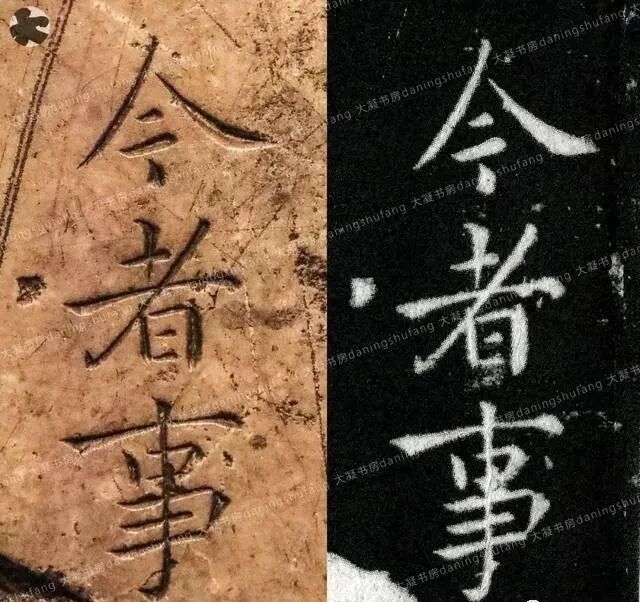 今者事
今者事
大凝书房daningshufang